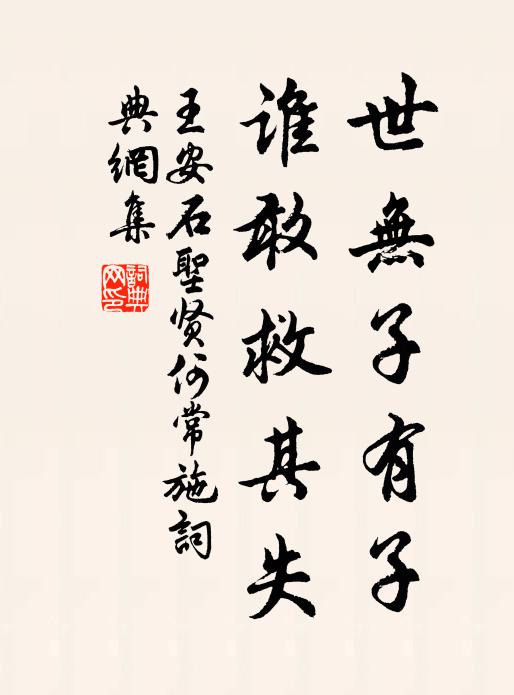 世無子有子
誰敢救其失
王安石聖贤何常施詞
典網集
詞典网印